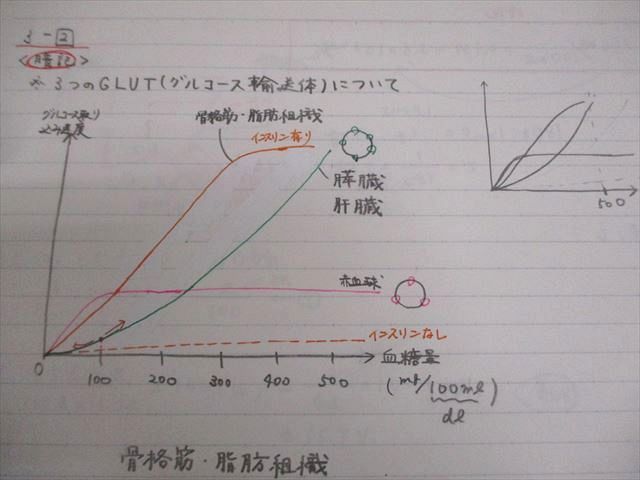 3-2
<暗記>
※ 3つのGLUT(グルコース輸送体)について
グルコース取り
込み速度
骨格筋・脂肪組織
インスリン有り
膵臓
肝臓
500
赤血球
インスリンなし
血糖量
0 100 200 300 400 500
(mg/100ml)
dl
骨格筋・脂肪組織